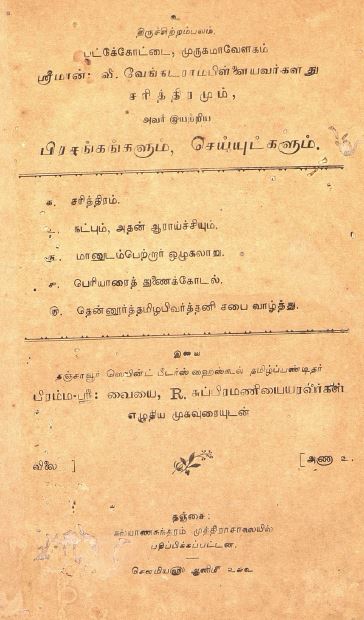 உ
திருச்சிற்றம்பலம்.
பட்டுக்கோட்டை, முருகமாவேளகம்
ஸ்ரீமான்: வி. வேங்கடராமபிள்ளையவர்களது
சரித்திரமும்,
அவர் இயற்றிய
பிரசங்கங்களும், செய்யுட்களும்.
க. சரித்திரம்.
உ. நட்பும், அதன் ஆராய்ச்சியும்.
ங. மானுடம்பெற்றார் ஒழுகலாறு.
ச. பெரியாரைத் துணைக்கோடல்.
ரு. தென்னூர்த்தமிழபிவர்த்தனி சபை வாழ்த்து.
இவை
தஞ்சாவூர் ஸெபின்ட் பீடர்ஸ் ஹைஸ்கூல் தமிழ்ப்பண்டிதர்
பிரம்ம-ஸ்ரீ: வையை, R. சுப்பிரமணியையரவர்கள்
எழுதிய முகவுரையுடன்
விலை ] [ அணா உ.
தஞ்சை:
கல்யாணசுந்தரம் முத்திராசாலையில்
பதிப்பிக்கப்பட்டன.
ஆனிமீ